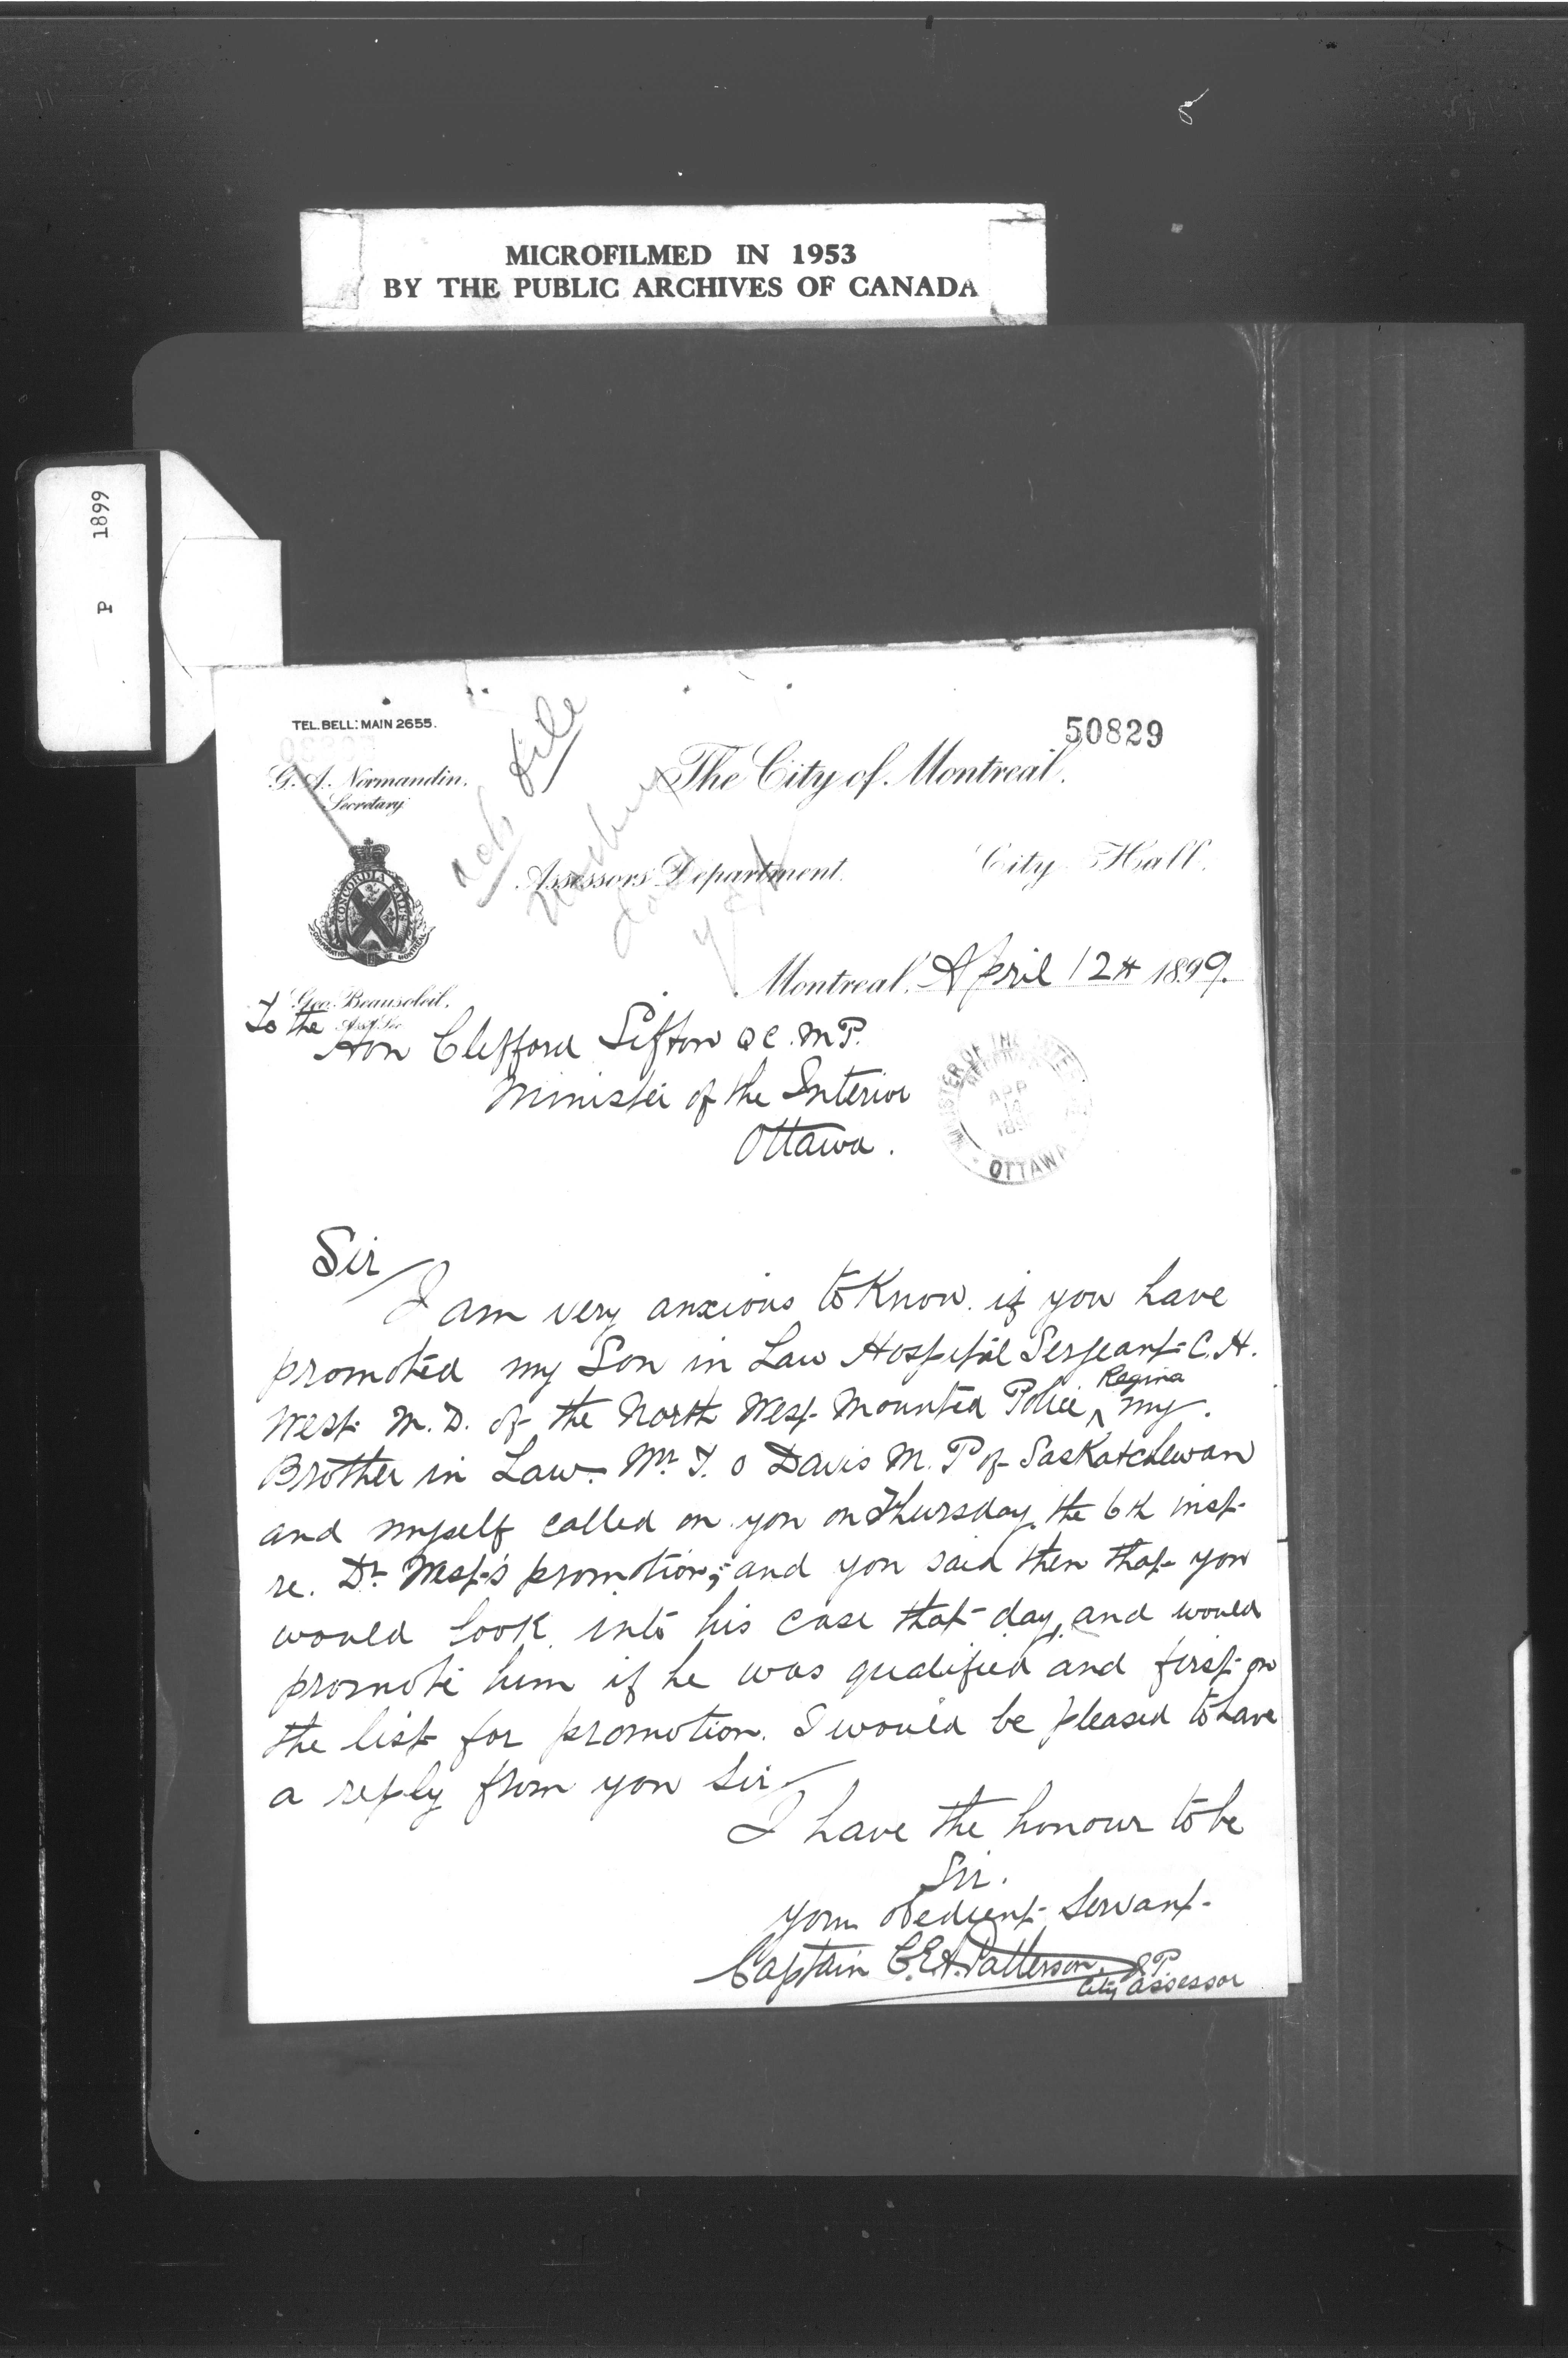 MICROFILMED IN 1953
BY THE PUBLIC ARCHIVES OF CANADA
P 1899
TEL. BELL: MAIN 2655.
50829
G. A. Normandin,
Secretary
ack file
The City of Montreal.
Assessors' Department.
City Hall.
CONCORDIA SALUS
Montreal, April 12th 1899.
Geo. Beausoleil,
Asst. Sec.
To the
Hon Clifford Sifton QC. M.P.
Minister of the Interior
Ottawa.
MINISTER OF INTERIOR
APR
OTTAWA
Sir
I am very anxious to Know. if you have
promoted my Son in Law Hospital Sergeant C. H.
West M. D. of the North West Mounted Police, ^ Regina my.
Brother in Law. Mr. T. O Davis M. P of Saskatchewan
and myself called on you on Thursday, the 6th inst
re. Dr. West's promotion; and you said then that you
would look into his case that day, and would
promote him if he was qualified and first on
the list for promotion. I would be pleased to have
a reply from you Sir
I have the honour to be
Sir.
Your obedient Servant
Captain C.E.A. Patterson. J.P.
City Assessor